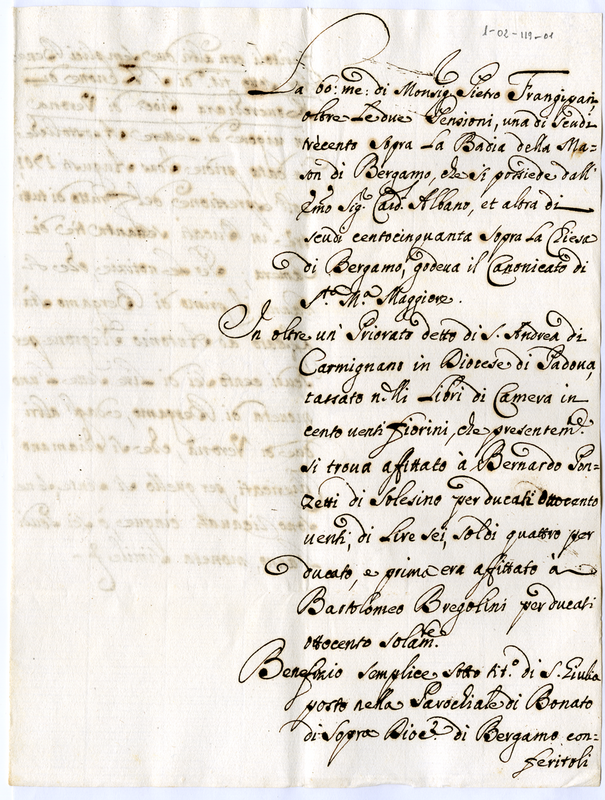 1-02-119-01
La bo: me: di Monsig.r Pietro Frangipani,
oltre le due Pensioni, una di scudi
trecento sopra La Badia della Ma-
son di Bergamo, che si possiede dall'
Emo Sig.r Card. Albano, et altra di
scudi centocinquanta sopra La Chiesa
di Bergamo, godeva il Canonicato di
S.ta M.a Maggiore.
In oltre un' Priorato detto di S. Andrea di
Carmignano in Diocese di Padova,
tassato nelli Libri di Camera in
cento venti fiorini, che presentem.te
si trova affittato à Bernardo Pon-
zetti di Solesino per ducati ottocento
venti, di Lire sei, soldi quattro per
ducato, e prima era affittato à
Bartolomeo Bregolini per ducati
ottocento solam.te
Benefizio semplice sotto tit.o di S. Giulia
posto nella Parochiale di Bonato
di Sopra Dioc. di Bergamo con-
feritoli